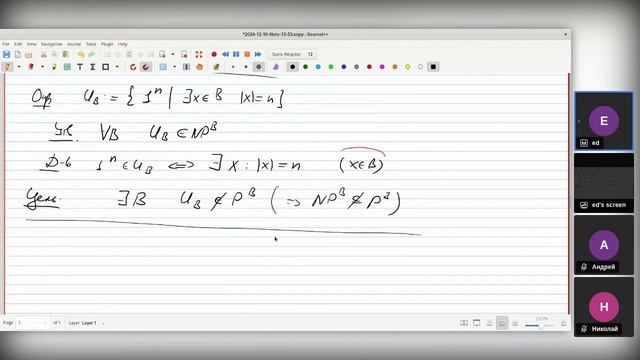 *2024-12-10-Note-13-53.xopp - Xournal++
File Edit View Navigation Journal Tools Plugin Help
Sans Regular 12
Опр U_B := { 1^n | ∃x∈B |x|=n }
Утв. ∀B U_B ∈ NP^B
Д-во 1^n ∈ U_B ⟺ ∃ x : |x|=n (x∈B)
Цель: ∃B U_B ∉ P^B ( ⇒ NP^B ⊄ P^B )
Page 1 of 1 Layer: Layer 1
E
ed
ed's screen
A
Андрей
H
Николай